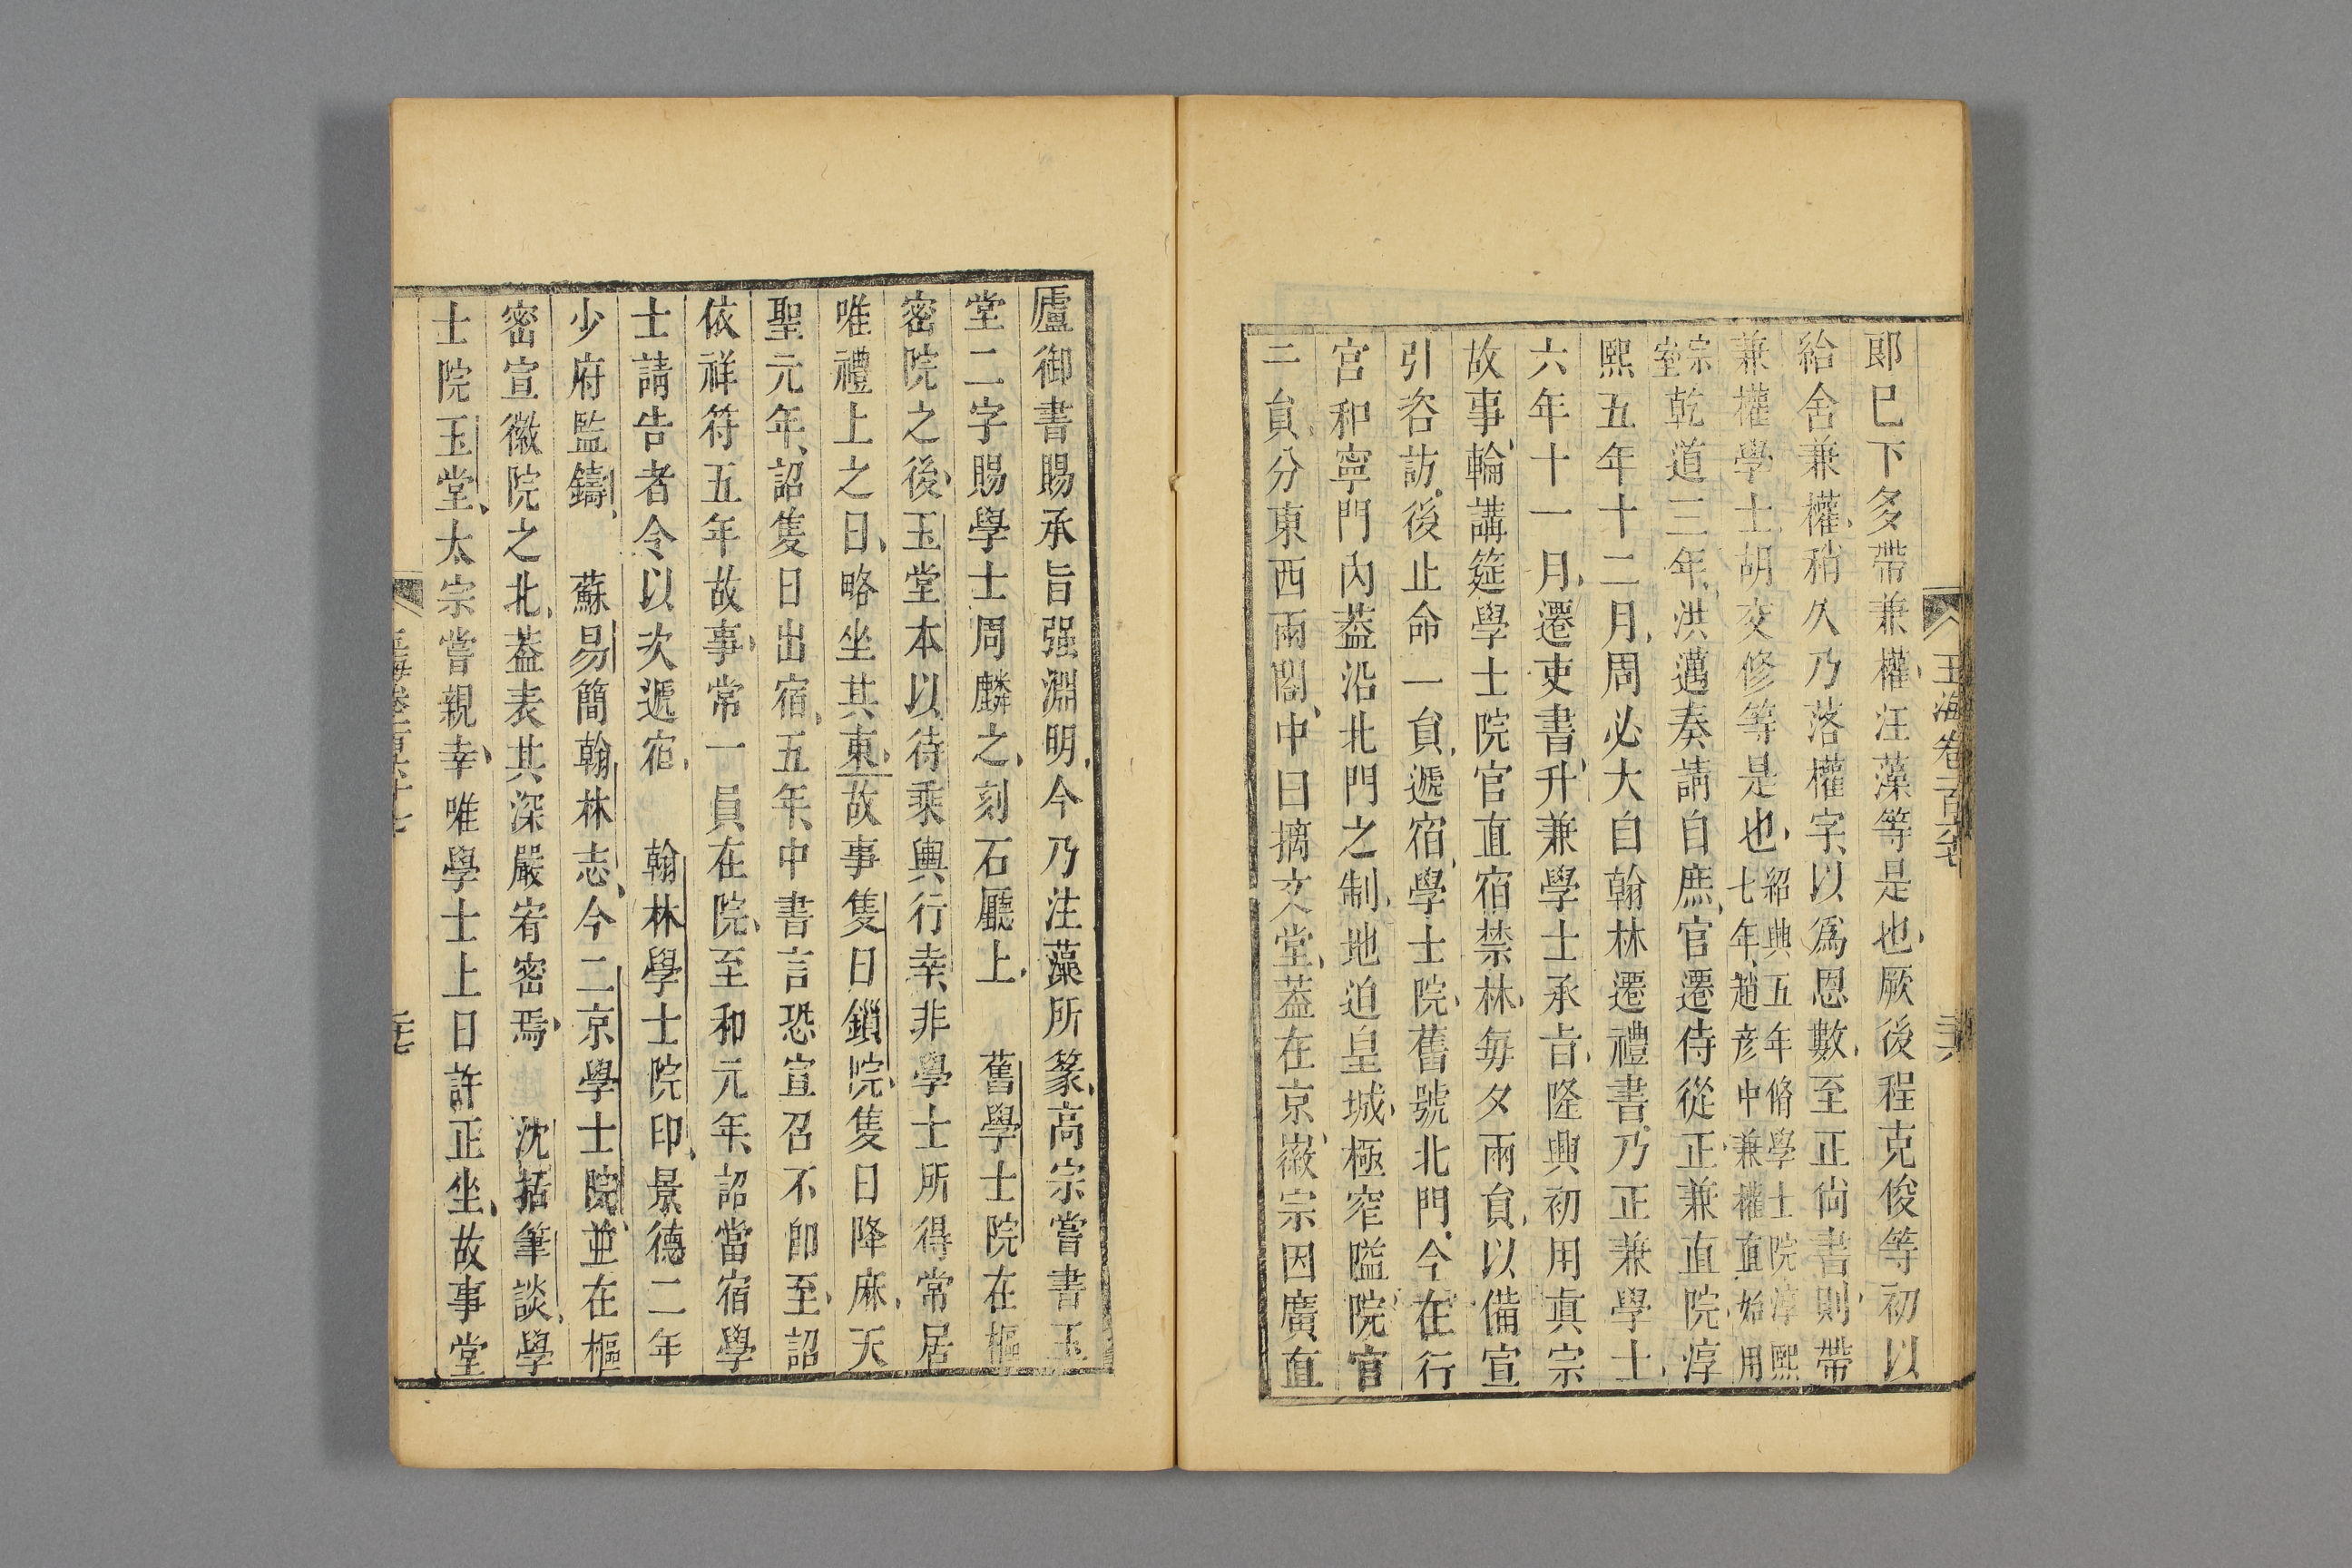 玉海卷一百六十七 三六
郎已下多帶兼權汪藻等是也厥後程克俊等初以
給舍兼權稍久乃落權字以爲恩數至正尚書則帶
兼權學士胡交修等是也紹興五年脩學士院淳熙七年趙彥中兼權直始用
宗室乾道三年洪邁奏請自庶官遷侍從正兼直院淳
熙五年十二月周必大自翰林遷禮書乃正兼學士
六年十一月遷吏書升兼學士承旨隆興初用真宗
故事輪講筵學士院官直宿禁林每夕兩員以備宣
引咨訪後止命一員遞宿學士院舊號北門今在行
宮和寧門內葢沿北門之制地迫皇城極窄隘院官
二員分東西兩閣中曰摛文堂葢在京徽宗因廣直
廬御書賜承旨强淵明今乃汪藻所篆高宗嘗書玉
堂二字賜學士周麟之刻石廳上 舊學士院在樞
密院之後玉堂本以待乘輿行幸非學士所得常居
唯禮上之日略坐其東故事隻日鎖院隻日降麻天
聖元年詔隻日出宿五年中書言恐宣召不即至詔
依祥符五年故事常一員在院至和元年詔當宿學
士請告者令以次遞宿 翰林學士院印景德二年
少府監鑄 蘇易簡翰林志今二京學士院並在樞
密宣徽院之北葢表其深嚴宥密焉 沈括筆談學
士院玉堂太宗嘗親幸唯學士上日許正坐故事堂